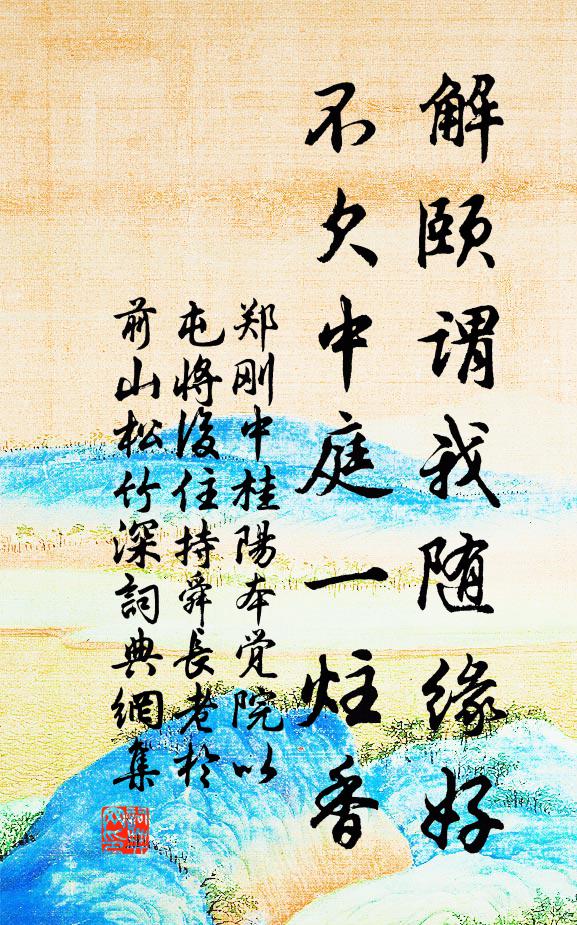 解颐谓我随缘好
不欠中庭一炷香
郑刚中桂陽本觉院以
屯将後住持舜長老於
前山松竹深詞典網集